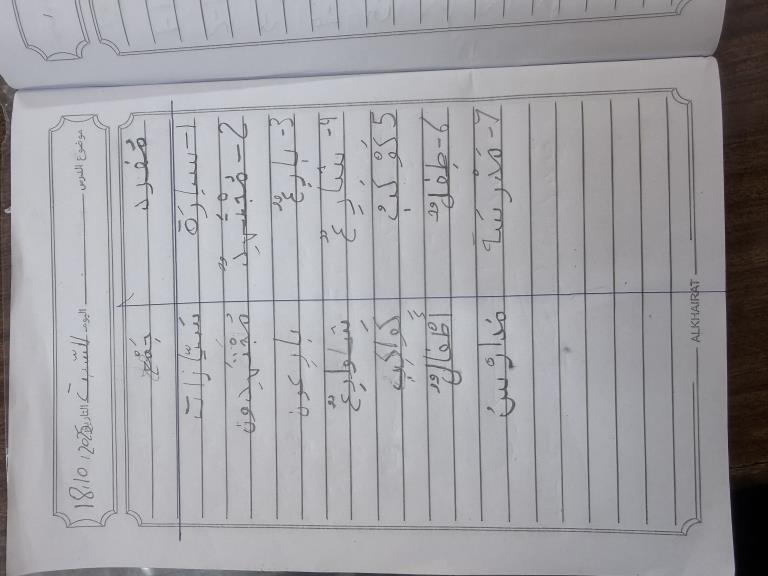 موضوع الدرس اليوم السبت التاريخ 18.10.2025
مُفرد جَمْع
1- سيارة سَيّارات
2- مُجتَهِدٌ مُجتَهِدون
3- بارِعٌ بارِعون
4- شارِعٌ شَوارِعٌ
5 كَوْكَبٌ كَواكِب
6- طِفلٌ أَطْفالٌ
7- مَدْرَسَة مَدارسُ
ALKHAIRAT